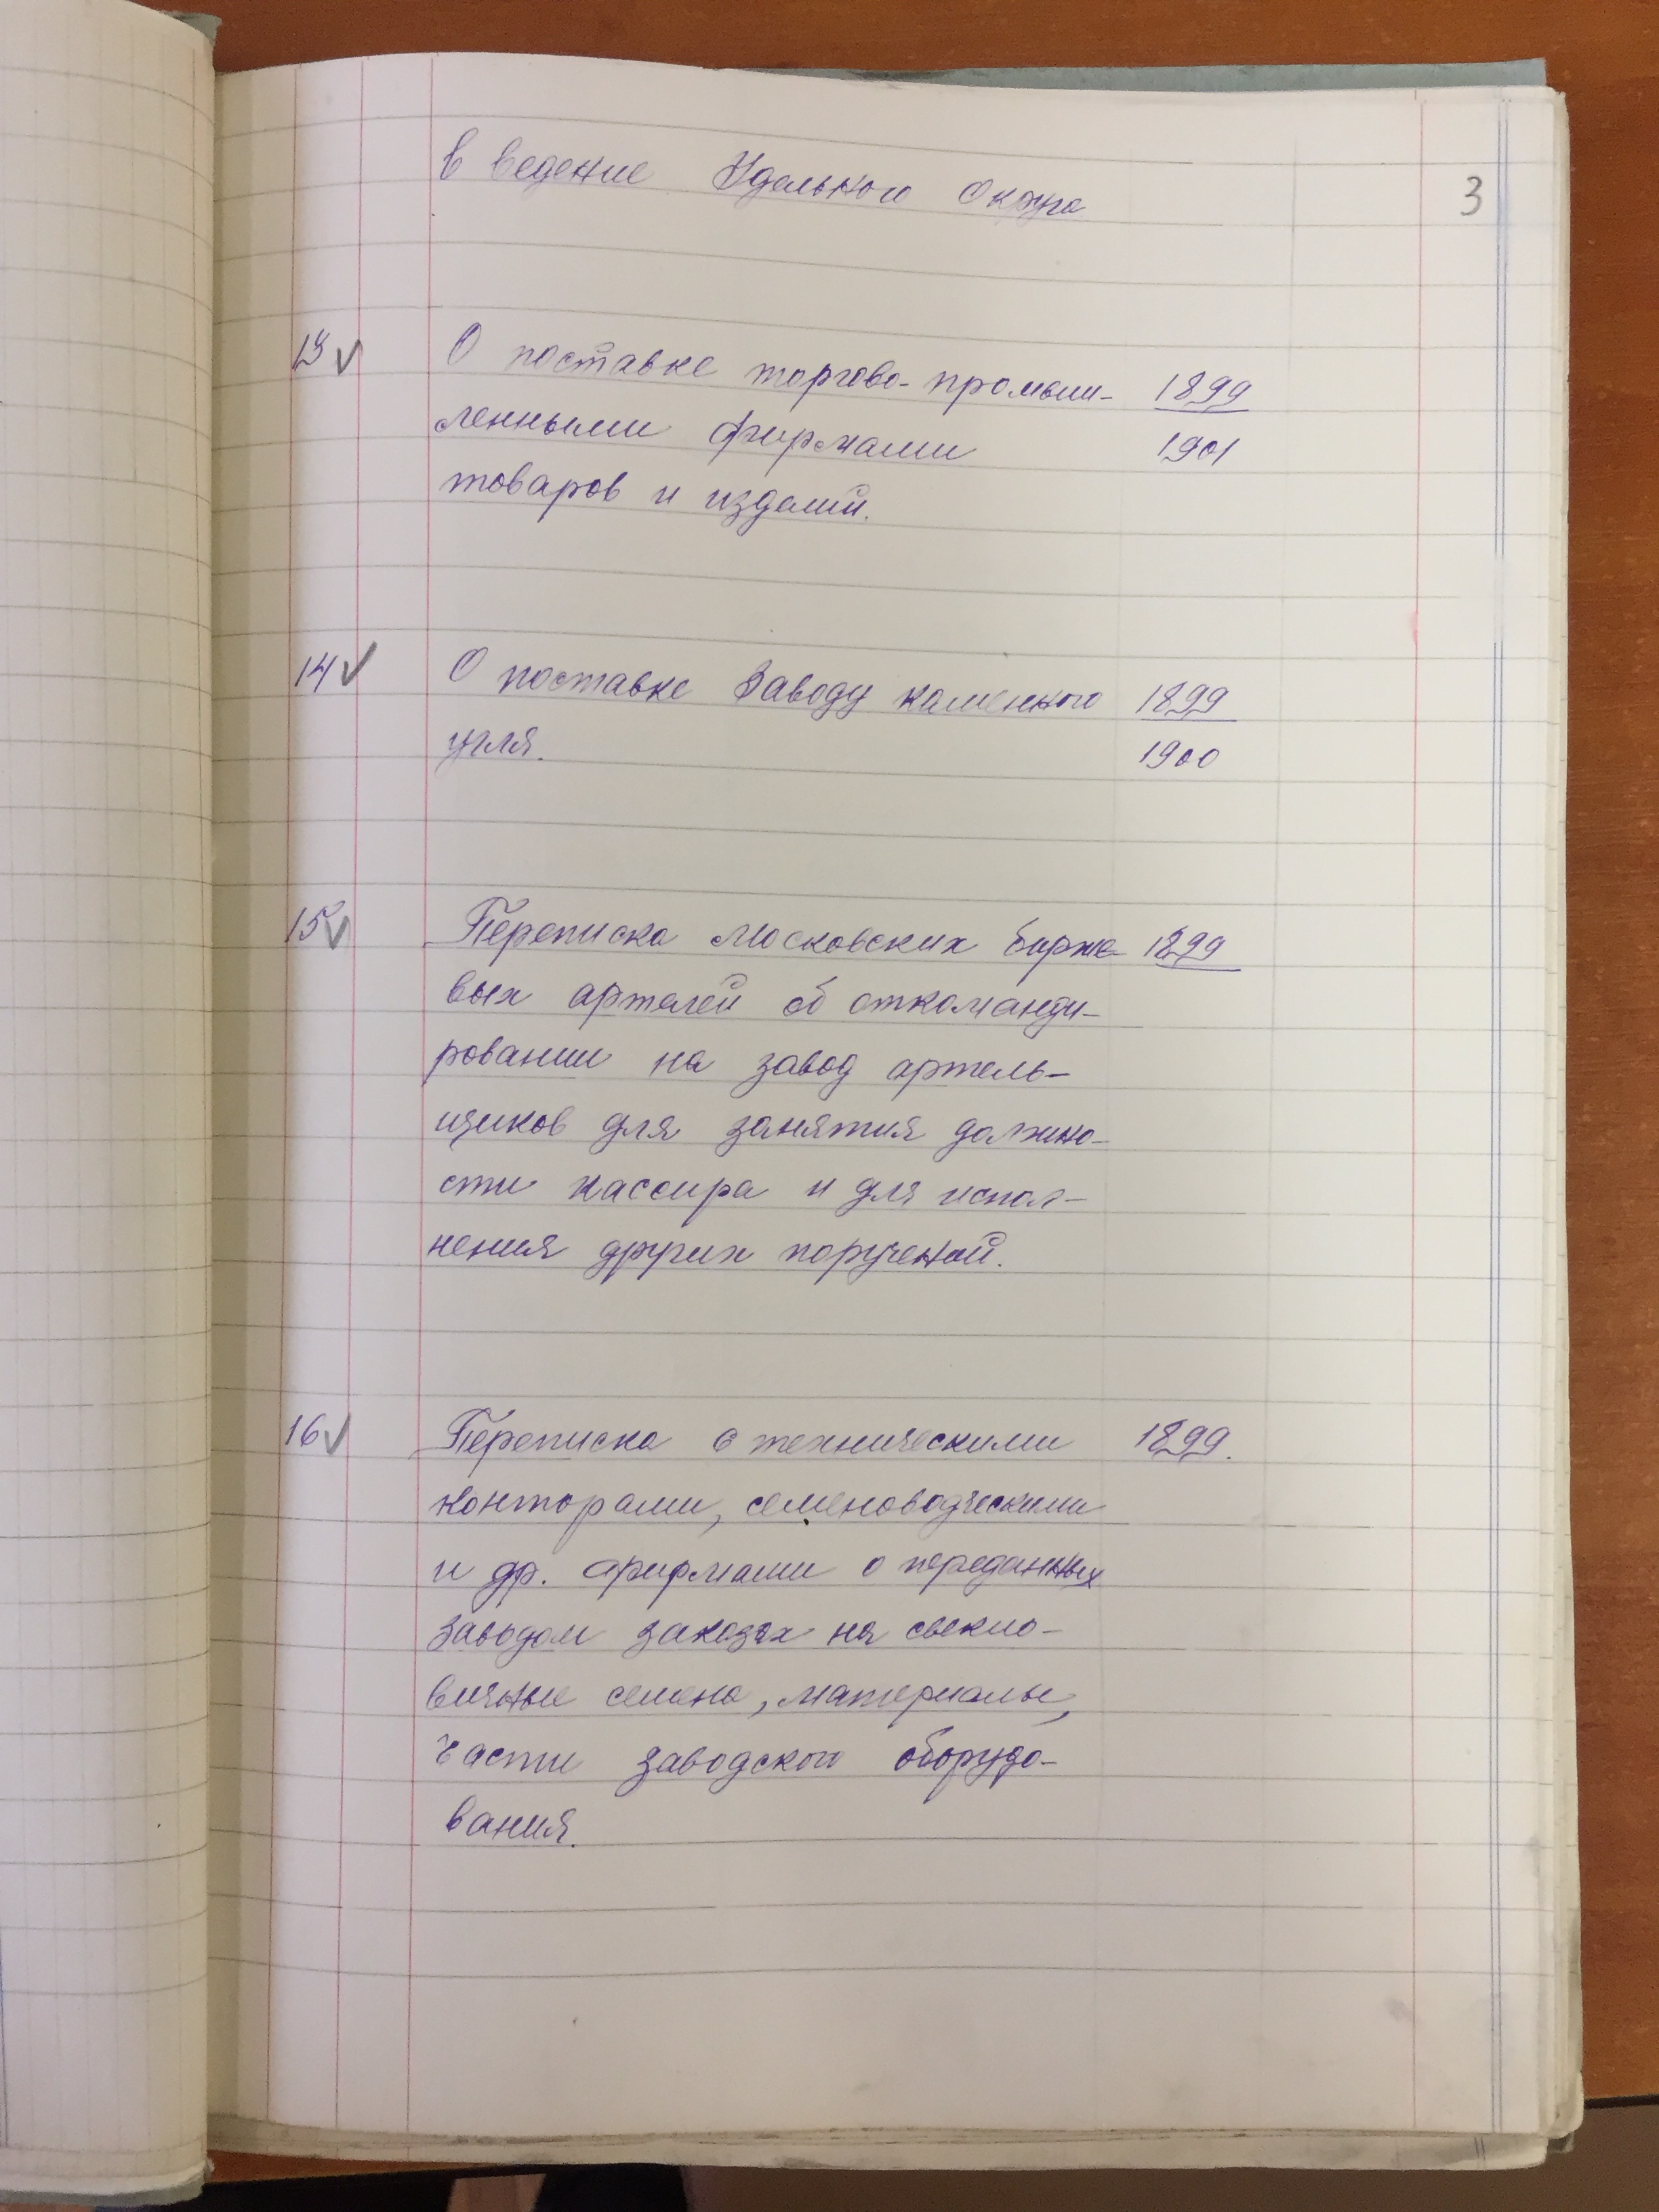 в ведение Удельного Округа
3
13 ✓ О поставке торгово-промыш- 1899
ленными фирмами 1901
товаров и изделий.
14 ✓ О поставке Заводу каменного 1899
угля. 1900
15 ✓ Переписка Московских бирже- 1899
вых артелей об откоманди-
ровании на завод артель-
щиков для занятия должно-
сти кассира и для испол-
нения других поручений.
16 ✓ Переписка с техническими 1899.
конторами, семеноводческими
и др. фирмами о переданных
заводом заказах на свекло-
вичные семена, материалы,
части заводского оборудо-
вания.